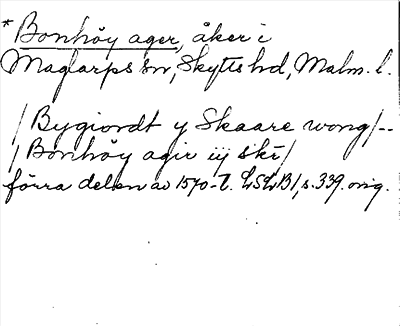 *Bonhöy ager, åker i
Maglarps sn, Skytts hd, Malm. l.
/Bygiordt y Skaare wong/--
/Bonhöy agir iij skr/
förra delen av 1570-t. LSLB1, s. 339. orig.